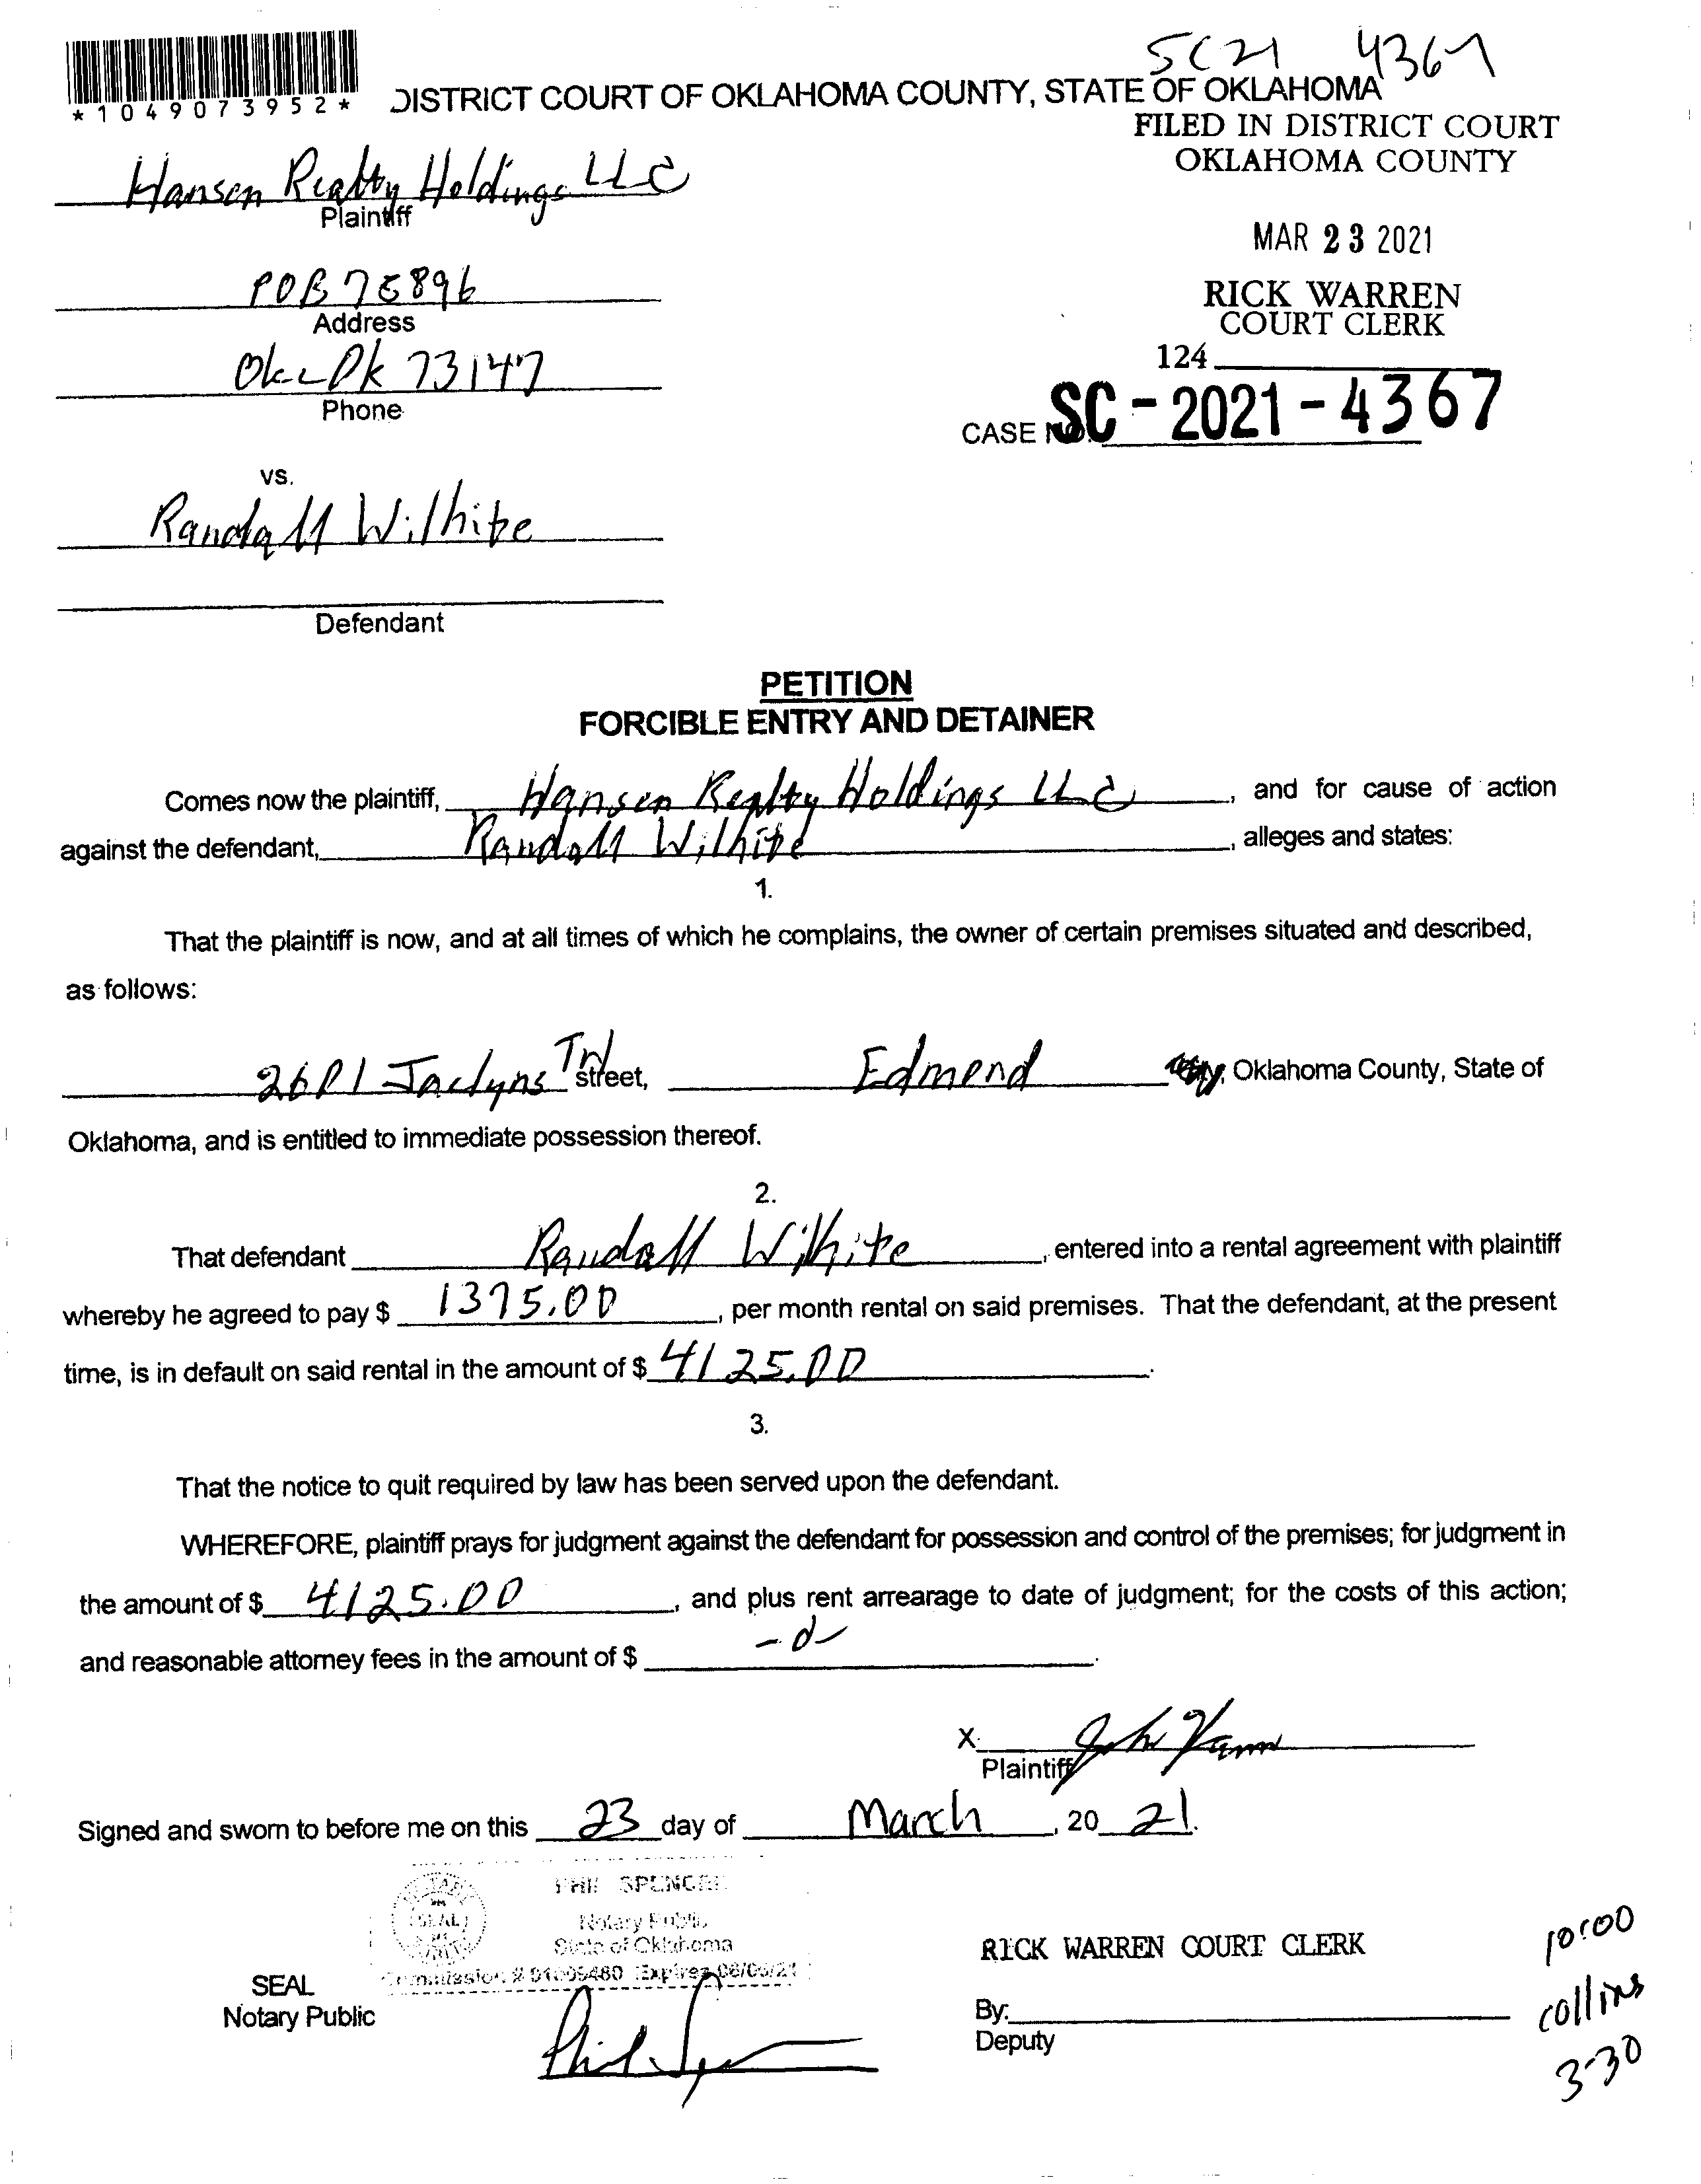 SC21 4367
*1049073952*
DISTRICT COURT OF OKLAHOMA COUNTY, STATE OF OKLAHOMA
FILED IN DISTRICT COURT
OKLAHOMA COUNTY
Hansen Realty Holdings LLC
Plaintiff
MAR 23 2021
POB 75896
Address
RICK WARREN
COURT CLERK
124
Okc Ok 73147
Phone
CASE NO. SC-2021-4367
vs.
Randall Wilhite
Defendant
PETITION
FORCIBLE ENTRY AND DETAINER
Comes now the plaintiff, Hansen Realty Holdings LLC, and for cause of action
against the defendant, Randall Wilhite, alleges and states:
1.
That the plaintiff is now, and at all times of which he complains, the owner of certain premises situated and described,
as follows:
2601 Jaclyns Trl street, Edmond, Oklahoma County, State of
Oklahoma, and is entitled to immediate possession thereof.
2.
That defendant Randall Wilhite, entered into a rental agreement with plaintiff
whereby he agreed to pay $ 1375.00, per month rental on said premises. That the defendant, at the present
time, is in default on said rental in the amount of $ 4125.00.
3.
That the notice to quit required by law has been served upon the defendant.
WHEREFORE, plaintiff prays for judgment against the defendant for possession and control of the premises; for judgment in
the amount of $ 4125.00, and plus rent arrearage to date of judgment; for the costs of this action;
and reasonable attorney fees in the amount of $ -0-.
X
Plaintiff
Signed and sworn to before me on this 23 day of March, 20 21.
PHIL SPENCER
Notary Public
SEAL
State of Oklahoma
Commission # 01009480 Expires 06/06/21
SEAL
Notary Public
RICK WARREN COURT CLERK
By:
Deputy
10:00
collins
3-30